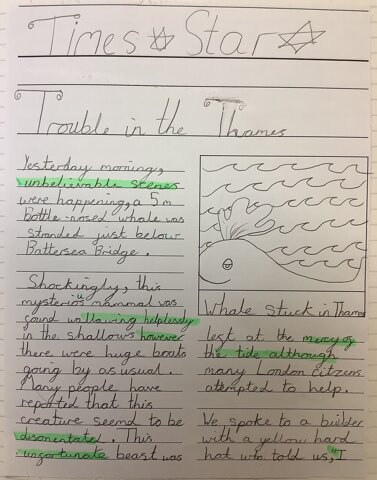 Times Star
Trouble in the Thames
Yesterday morning,
unbelievable scenes
were happening, a 5m
Bottle-nosed whale was
stranded just below
Battersea Bridge.
Shockingly, this
mysterios mammal was
found wallowing helplessly
in the shallows however
there were huge boats
going by as usual.
Many people have
reported that this
creature seemd to be
disorientated. This
unfortunate beast was
Whale Stuck in Thames
left at the mercy of
the tide although
many London citizens
attempted to help.
We spoke to a bulder
with a yellow hard
hat who told us, "I